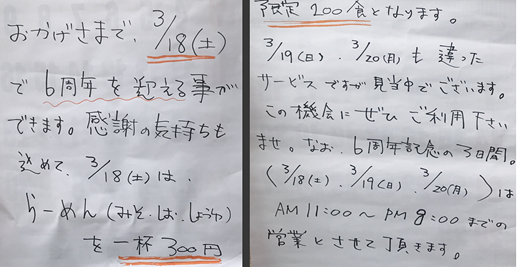 おかげさまで、3/18(土)
で6周年を迎える事が
できます。感謝の気持ちも
込めて、3/18(土)は、
らーめん(みそ・しお・しょうゆ)
を一杯300円
限定200食となります。
3/19(日)、3/20(月)も違った
サービスですが見当中でございます。
この機会にぜひご利用下さい
ませ。なお、6周年記念の3日間。
(3/18(土)、3/19(日)、3/20(月))は
AM11:00〜PM8:00までの
営業とさせて頂きます。